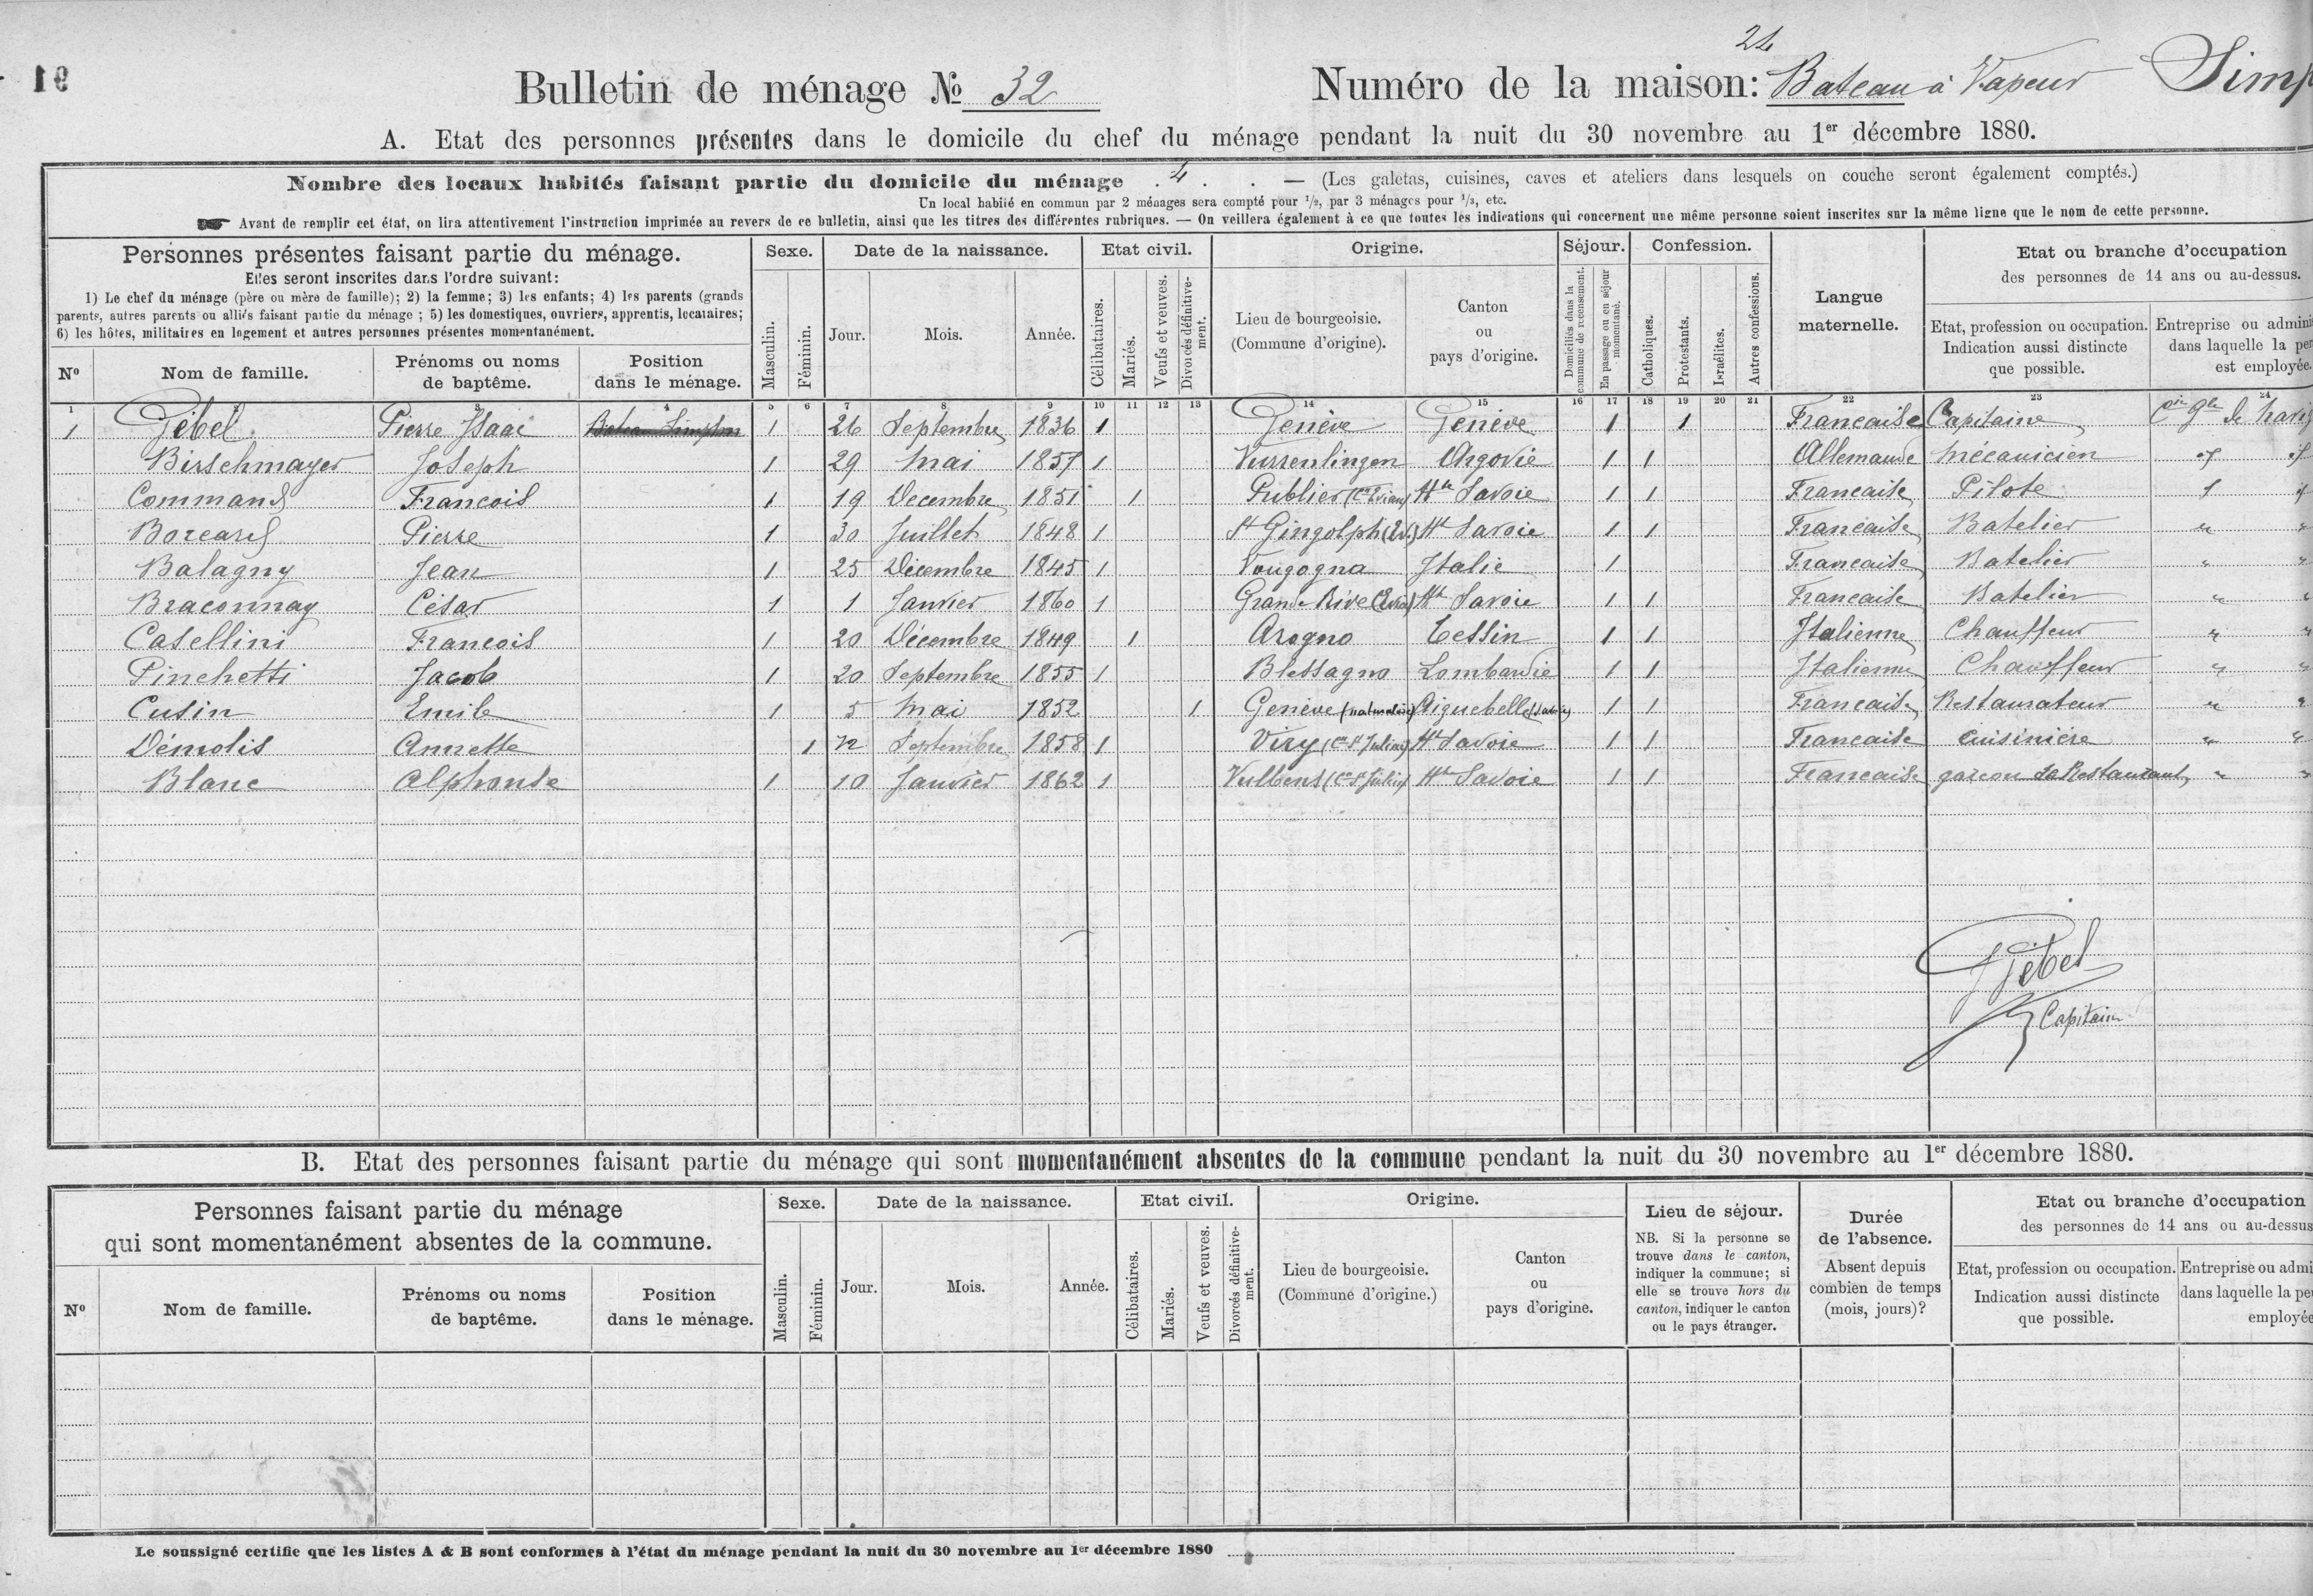 91
24
Bulletin de ménage № 32
Numéro de la maison: Bateau à Vapeur Simp
A. Etat des personnes présentes dans le domicile du chef du ménage pendant la nuit du 30 novembre au 1er décembre 1880.
Nombre des locaux habités faisant partie du domicile du ménage . 4 . . — (Les galetas, cuisines, caves et ateliers dans lesquels on couche seront également comptés.)
Un local habité en commun par 2 ménages sera compté pour 1/2, par 3 ménages pour 1/3, etc.
☛ Avant de remplir cet état, on lira attentivement l'instruction imprimée au revers de ce bulletin, ainsi que les titres des différentes rubriques. — On veillera également à ce que toutes les indications qui concernent une même personne soient inscrites sur la même ligne que le nom de cette personne.
Personnes présentes faisant partie du ménage.
Elles seront inscrites dans l'ordre suivant:
1) Le chef du ménage (père ou mère de famille); 2) la femme; 3) les enfants; 4) les parents (grands
parents, autres parents ou alliés faisant partie du ménage ; 5) les domestiques, ouvriers, apprentis, locataires;
6) les hôtes, militaires en logement et autres personnes présentes momentanément.
Nº
Nom de famille.
Prénoms ou noms
de baptême.
Position
dans le ménage.
Sexe.
Masculin.
Féminin.
Date de la naissance.
Jour.
Mois.
Année.
Etat civil.
Célibataires.
Mariés.
Veufs et veuves.
Divorcés définitive-
ment.
Origine.
Lieu de bourgeoisie.
(Commune d'origine).
Canton
ou
pays d'origine.
Séjour.
Domiciliés dans la
commune de recensement.
En passage ou en séjour
momentané.
Confession.
Catholiques.
Protestants.
Israélites.
Autres confessions.
Langue
maternelle.
Etat ou branche d'occupation
des personnes de 14 ans ou au-dessus.
Etat, profession ou occupation.
Indication aussi distincte
que possible.
Entreprise ou admini
dans laquelle la per
est employée.
1 3 4 5 6 7 8 9 10 11 12 13 14 15 16 17 18 19 20 21 22 23 24
1 Gébel Pierre Isaac Bateau Simplon 1 26 Septembre 1836 1 Genève Genève 1 1 Francaise Capitaine Cie Gle de Navig
Birschmayer Joseph 1 29 Mai 1857 1 Wurrenlingen Argovie 1 1 Allemande Mécanicien
Command Francois 1 19 Decembre 1851 1 Publier (Con Evian) Hte Savoie 1 1 Francaise Pilote
Borcard Pierre 1 30 Juillet 1848 1 St Gingolph (Ev.) Hte Savoie 1 1 Francaise Batelier " "
Balagny Jean 1 25 Décembre 1845 1 Vougogna Italie 1 Francaise Batelier " "
Braconnay César 1 1 Janvier 1860 1 Grande Rive (Evian) Hte Savoie 1 1 Francaise Batelier " "
Casellini Francois 1 20 Décembre 1849 1 Arogno Tessin 1 1 Italienne Chauffeur " "
Pinchetti Jacob 1 20 Septembre 1855 1 Blessagno Lombardie 1 1 Italienne Chauffeur " "
Cusin Emile 1 5 Mai 1852 1 Genève Aiguebelle (Savoie) 1 1 Francaise Restaurateur " "
Démolis Annette 1 Septembre 1858 1 Viry (Con St Julien) Hte Savoie 1 1 Francaise Cuisinière " "
Blanc Alphonse 1 10 Janvier 1862 1 Vulbens (Con St Julien) Hte Savoie 1 1 Francaise garçon de Restaurant " "
Gébel
Capitaine
B. Etat des personnes faisant partie du ménage qui sont momentanément absentes de la commune pendant la nuit du 30 novembre au 1er décembre 1880.
Personnes faisant partie du ménage
qui sont momentanément absentes de la commune.
Nº
Nom de famille.
Prénoms ou noms
de baptême.
Position
dans le ménage.
Sexe.
Masculin.
Féminin.
Date de la naissance.
Jour.
Mois.
Année.
Etat civil.
Célibataires.
Mariés.
Veufs et veuves.
Divorcés définitive-
ment.
Origine.
Lieu de bourgeoisie.
(Commune d'origine.)
Canton
ou
pays d'origine.
Lieu de séjour.
NB. Si la personne se
trouve dans le canton,
indiquer la commune; si
elle se trouve hors du
canton, indiquer le canton
ou le pays étranger.
Durée
de l'absence.
Absent depuis
combien de temps
(mois, jours)?
Etat ou branche d'occupation
des personnes de 14 ans ou au-dessus
Etat, profession ou occupation.
Indication aussi distincte
que possible.
Entreprise ou admi
dans laquelle la per
employée
Le soussigné certifie que les listes A & B sont conformes à l'état du ménage pendant la nuit du 30 novembre au 1er décembre 1880